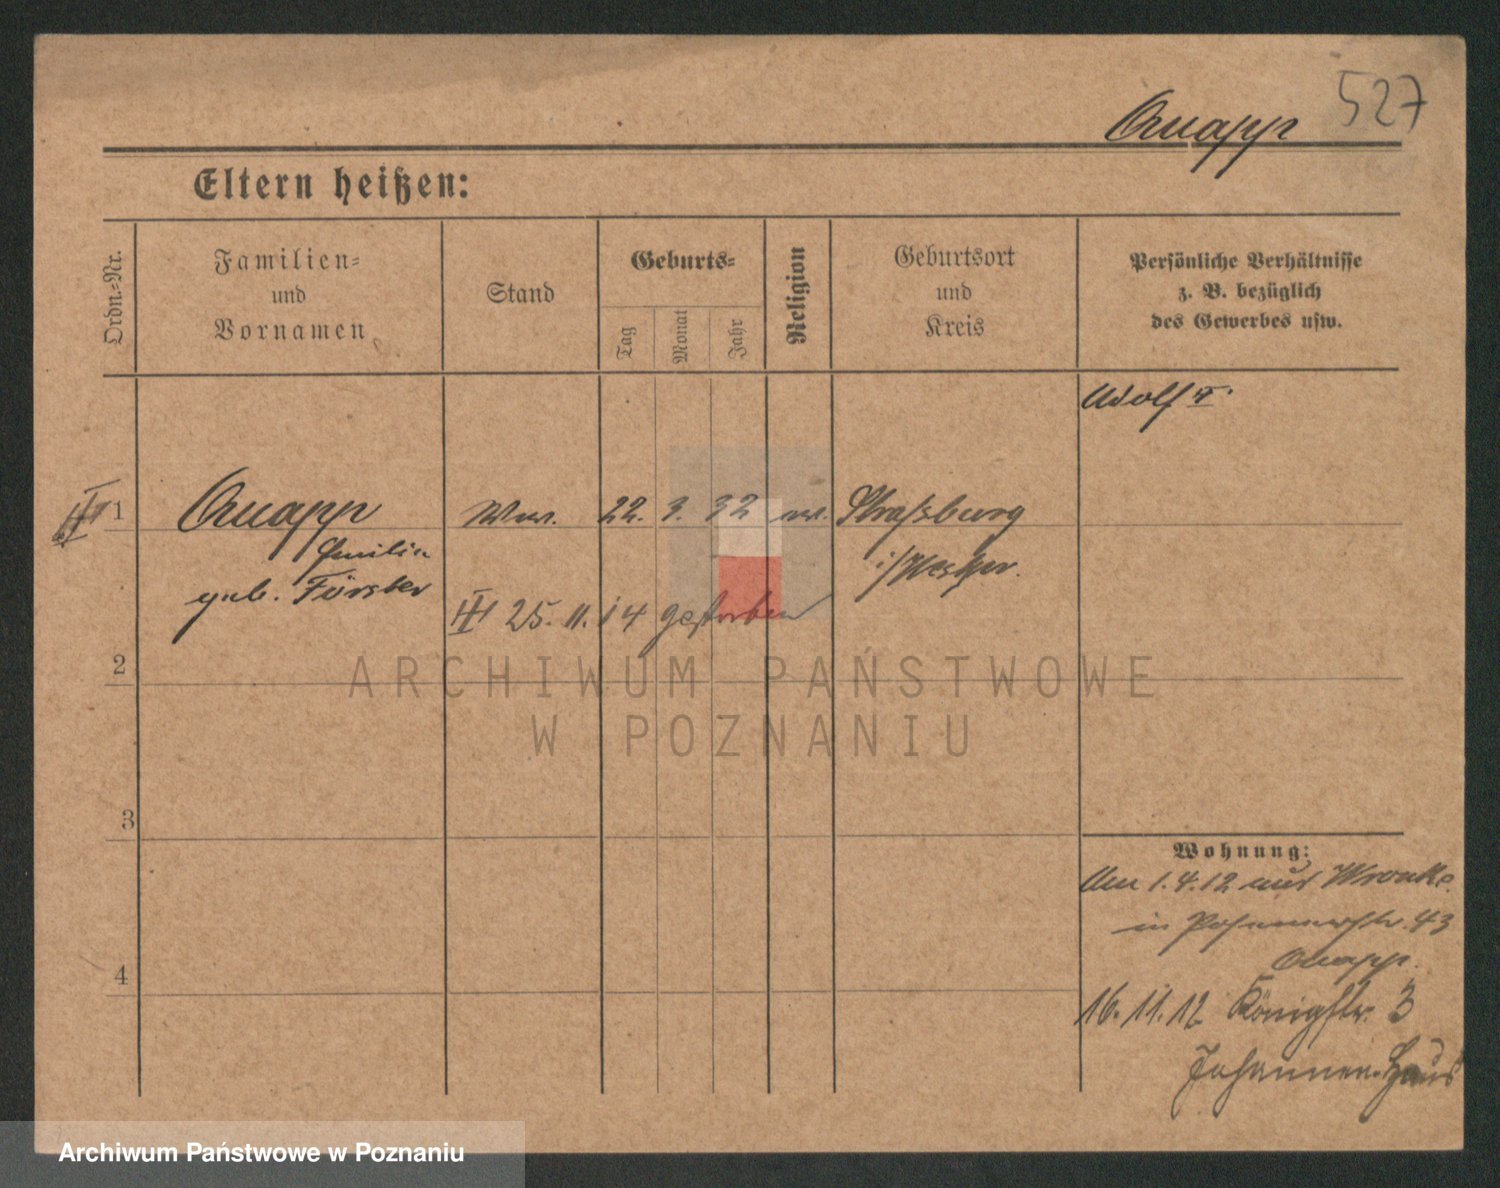 527
Knapp
Eltern heißen:
Ordn.-Nr.
Familien-
und
Vornamen
Stand
Geburts-
Tag
Monat
Jahr
Religion
Geburtsort
und
Kreis
Persönliche Verhältnisse
z. B. bezüglich
des Gewerbes usw.
Adolf
1
Knapp
Ww. 22. 3. 32 ev. Straßburg
Emilie
geb. Förster
i/Westpr.
25. 11. 14 gestorben
2
ARCHIWUM PAŃSTWOWE
W POZNANIU
3
Wohnung:
Am 1.4.12 aus Wronke
in Posenerstr. 43
Knapp.
4
16. 11. 12 Königstr. 3
Johannen. Haus
Archiwum Państwowe w Poznaniu